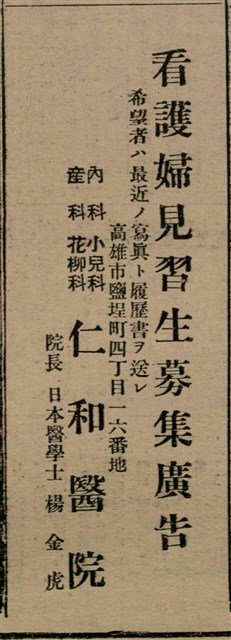 看護婦見習生募集廣告
希望者ハ最近ノ寫眞ト履歷書ヲ送レ
高雄市鹽埕町四丁目一六番地
內科 小兒科
産科 花柳科
仁和醫院
院長 日本醫學士 楊金虎